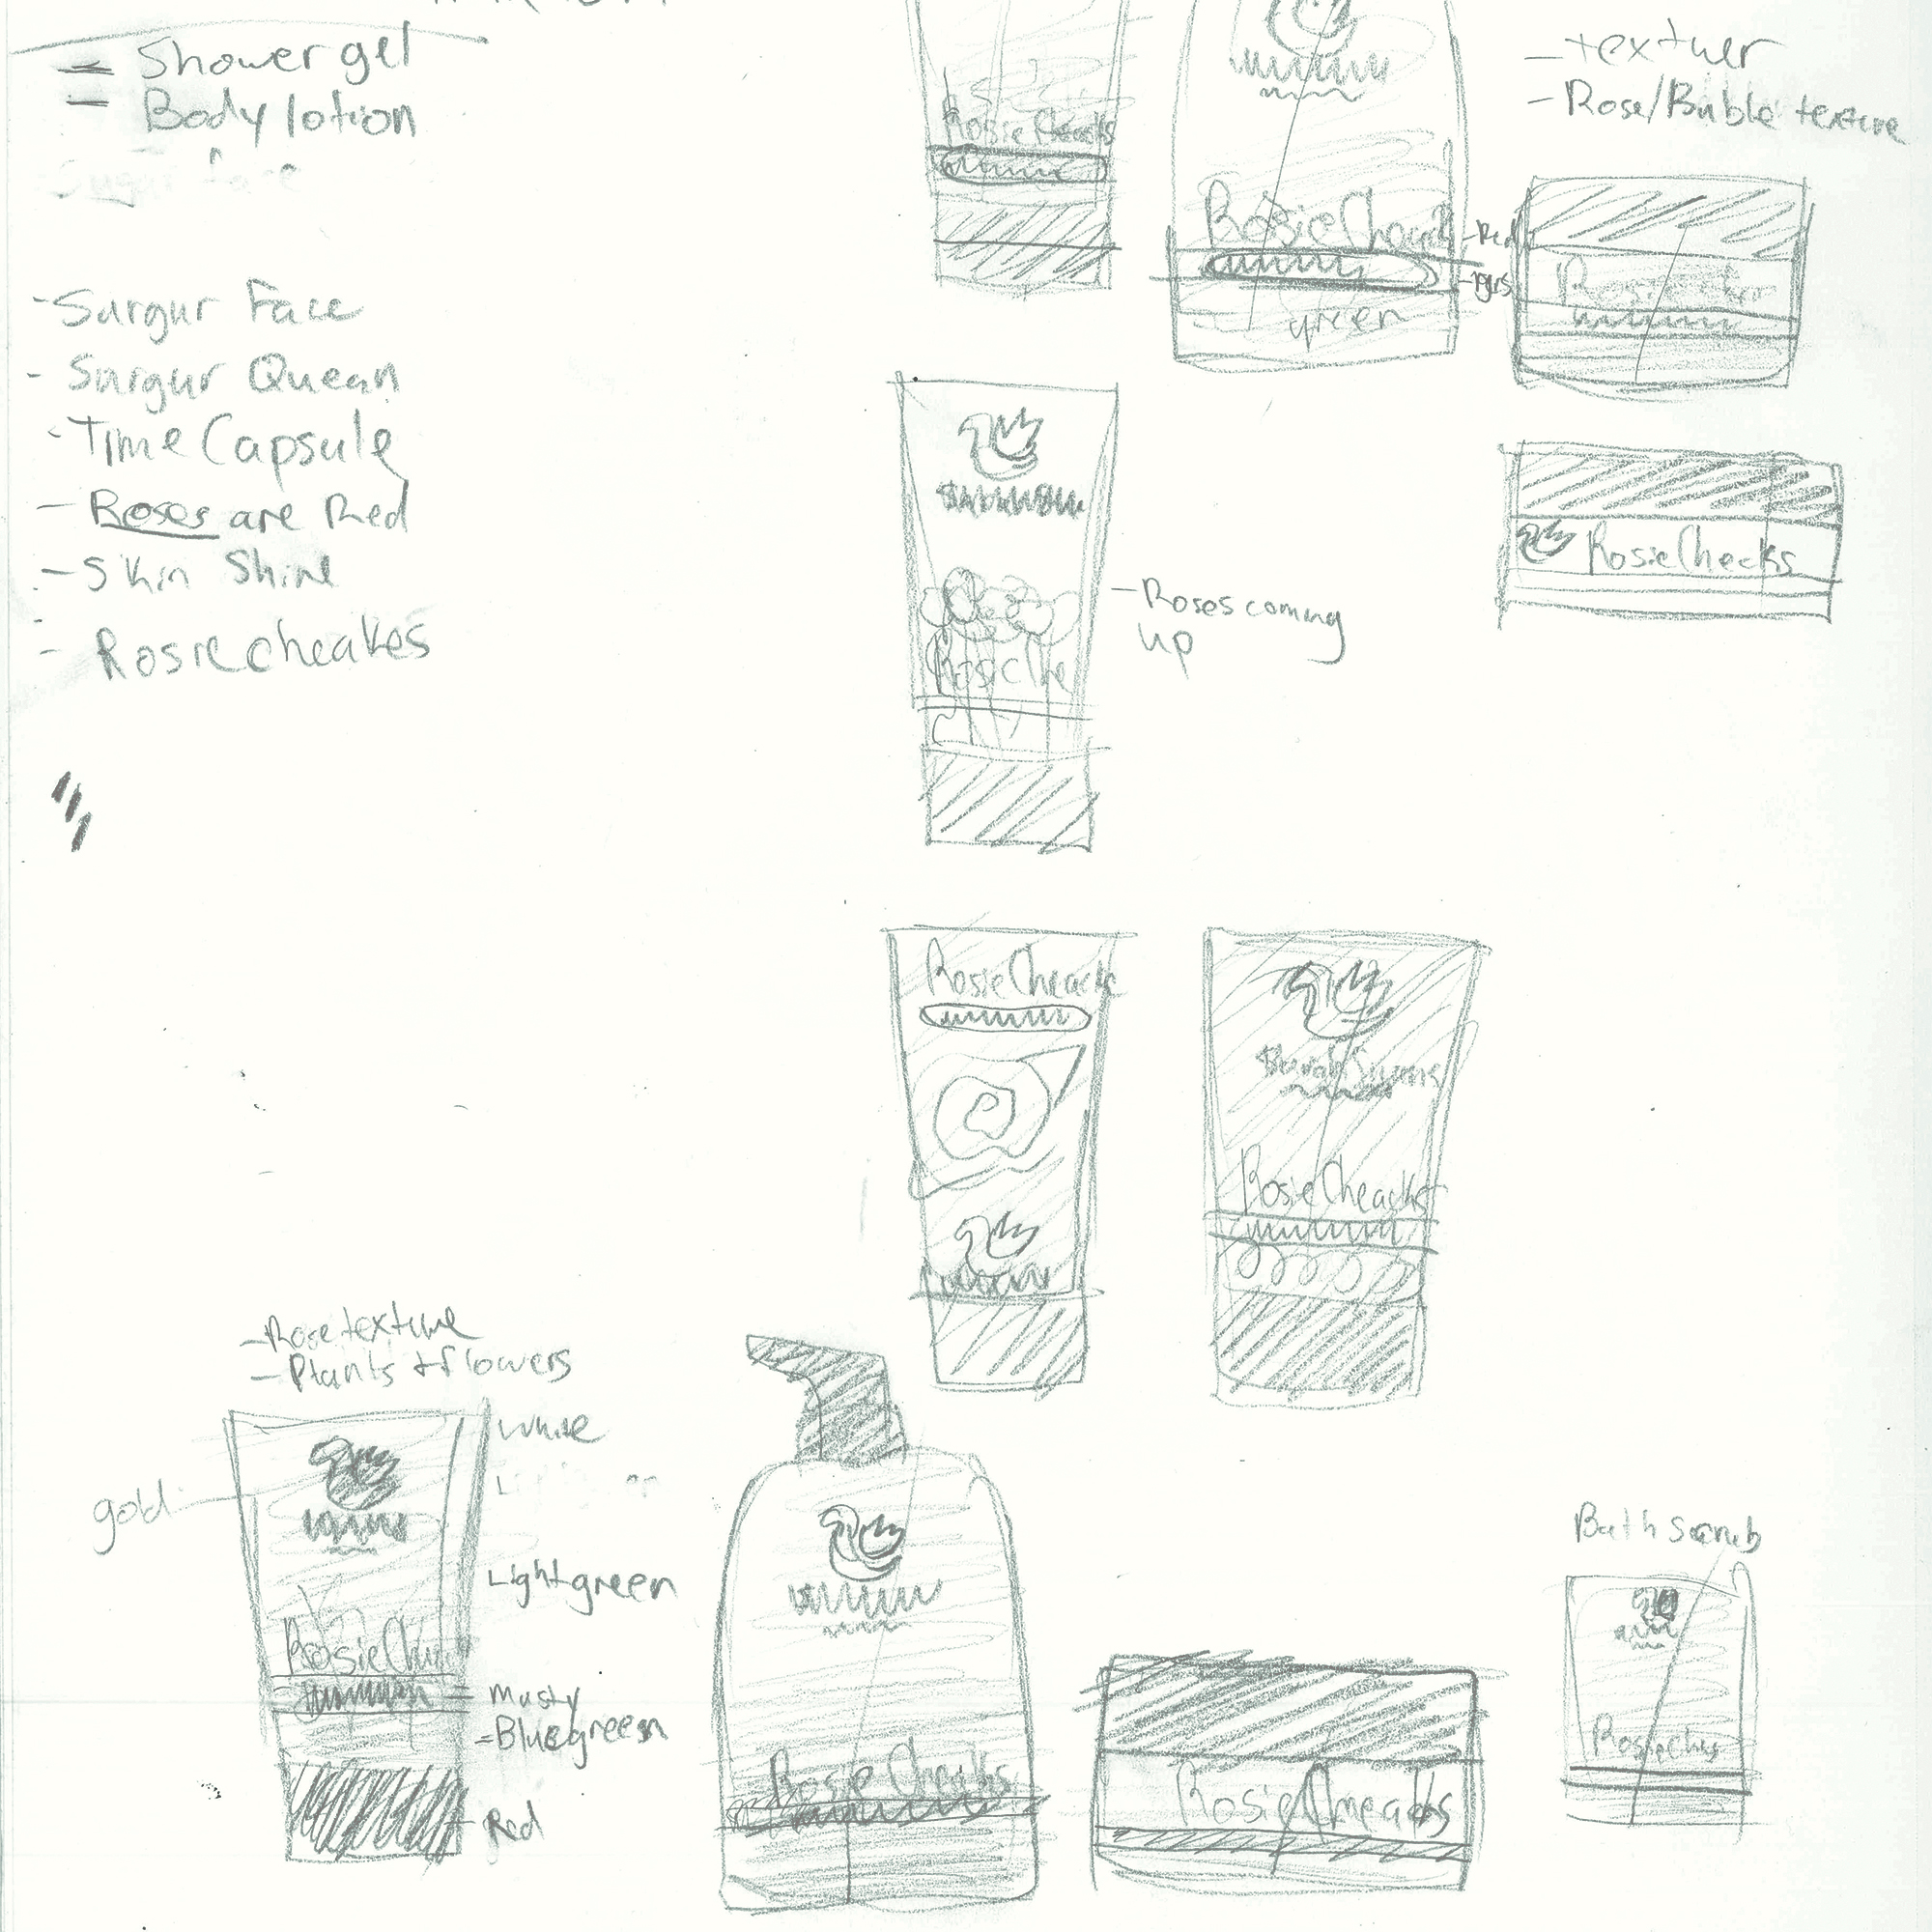 = Shower gel
- Body lotion
Sugur face
- Surgur Face
- Surgur Quean
- Time Capsule
- Roses are Red
- Skin Shine
- Rosie cheakes
Rosie Cheaks
Rosie Cheak
- Red
green
- textuer
- Rose/Buble texture
Rosie
Rosie Checks
- Roses coming
up
Rosie Che
Rosie Cheack
Rosie Cheackes
- Rose texture
- Plants + flowers
White
gold
Light green
Rosie Che
Musty
= Bluegreen
Red
Rosie Cheaks
Rosie Cheacks
Bath scrub
Rosie Cheks